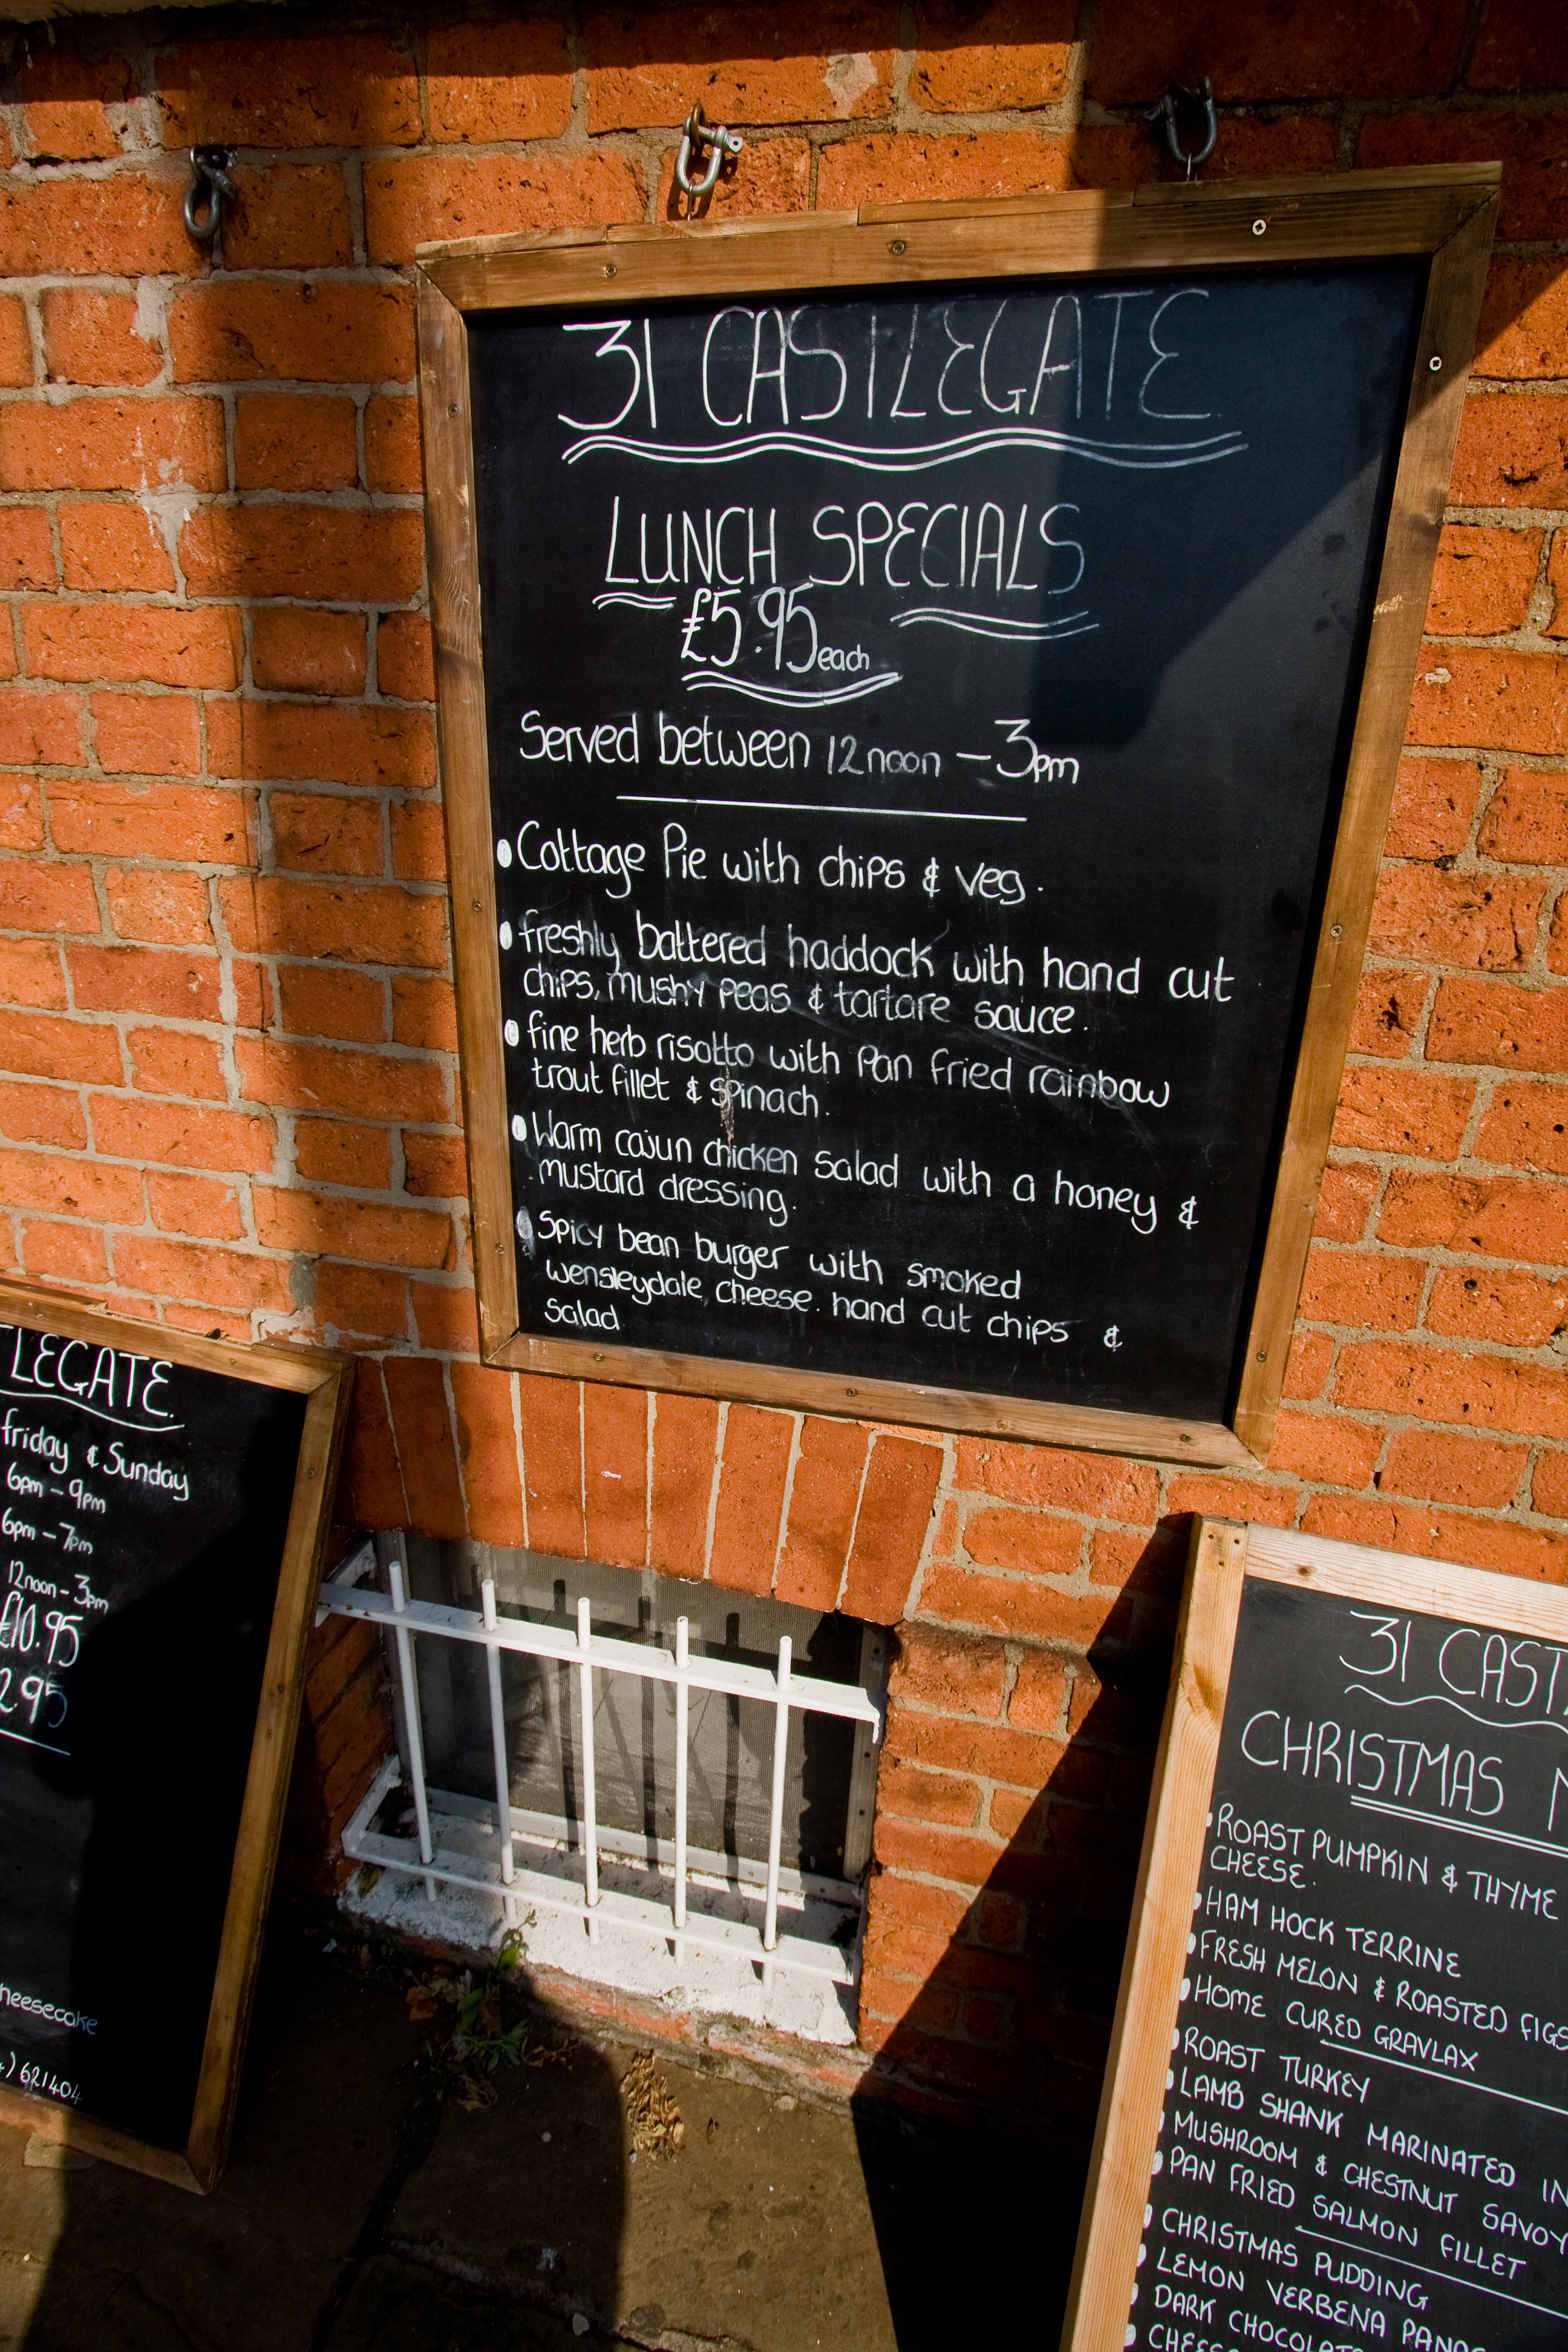 31 CASTLEGATE
LUNCH SPECIALS
£5.95 each
Served between 12noon - 3pm
Cottage Pie with chips & veg.
freshly battered haddock with hand cut
chips, mushy peas & tartare sauce.
fine herb risotto with pan fried rainbow
trout fillet & spinach.
Warm cajun chicken salad with a honey &
mustard dressing.
Spicy bean burger with smoked
wensleydale, cheese. hand cut chips &
salad
TLEGATE
friday & Sunday
6pm - 9pm
6pm - 7pm
12noon - 3pm
£10.95
2.95
heesecake
) 621404
31 CAST
CHRISTMAS
ROAST PUMPKIN & THYME
CHEESE.
HAM HOCK TERRINE
FRESH MELON & ROASTED FIGS
HOME CURED GRAVLAX
ROAST TURKEY
LAMB SHANK MARINATED IN
MUSHROOM & CHESTNUT SAVOY
PAN FRIED SALMON FILLET
CHRISTMAS PUDDING
LEMON VERBENA PANA
DARK CHOCOLAT
CHEES